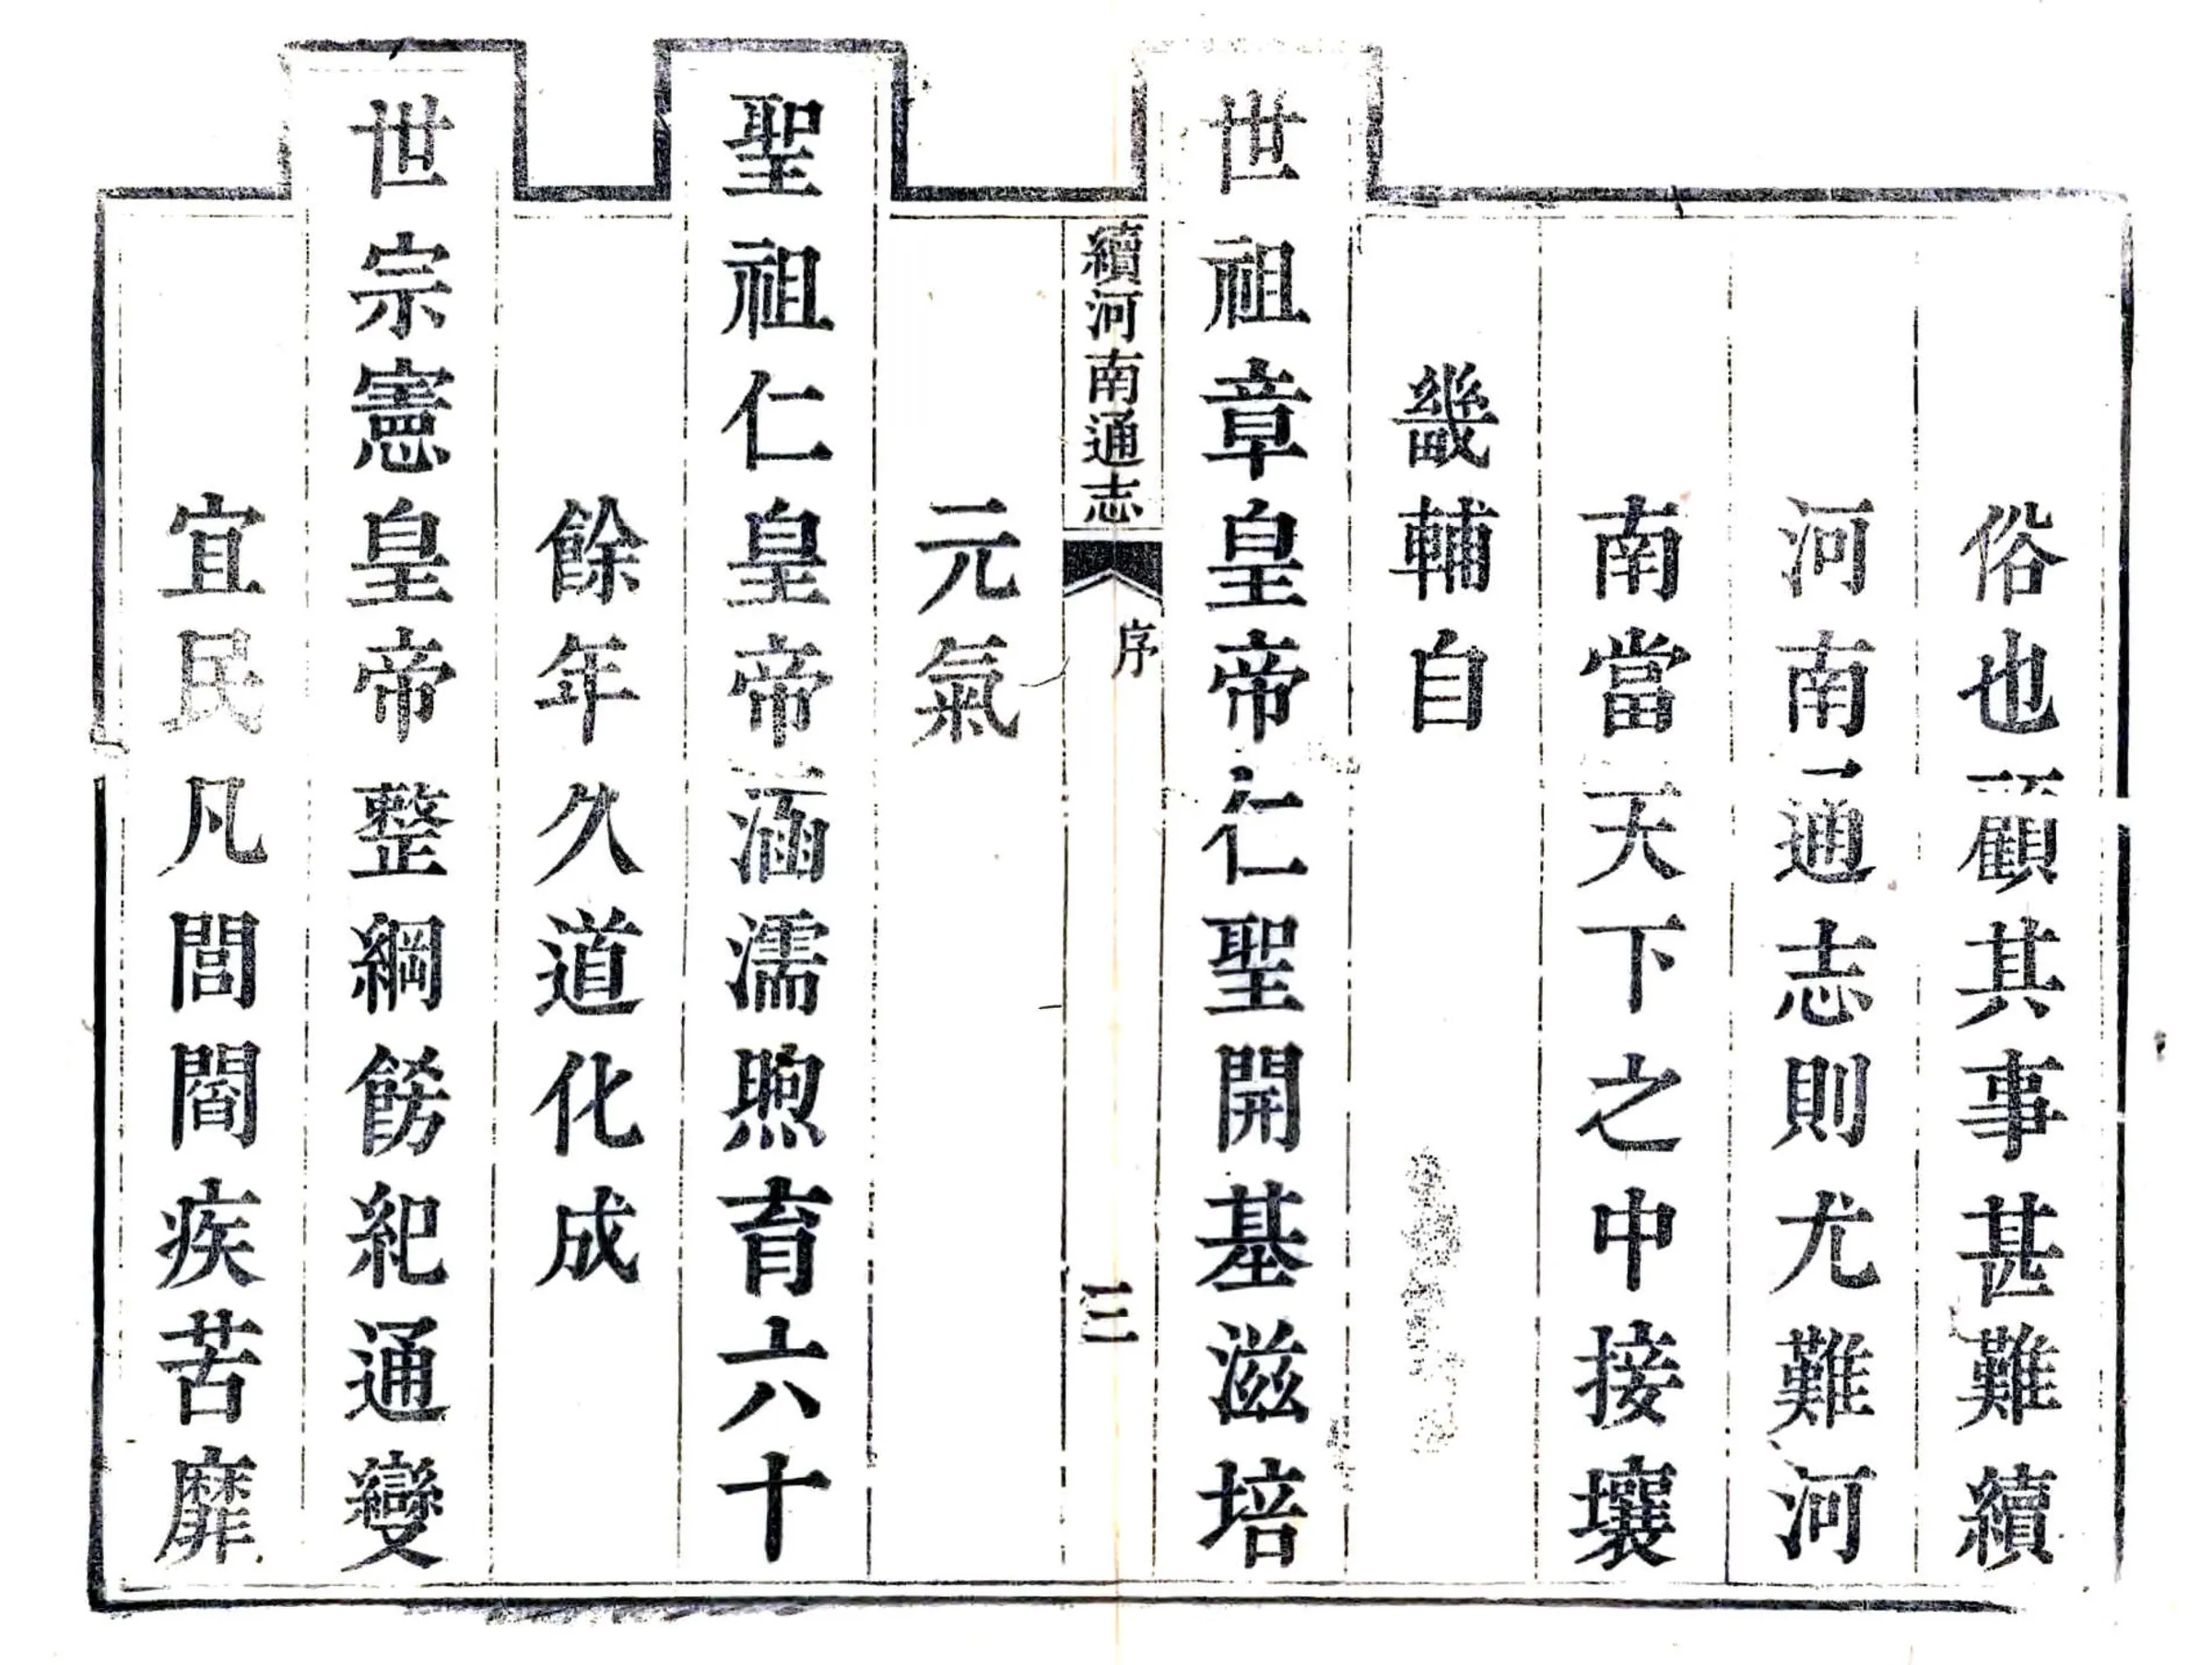 俗也顧其事甚難續
河南通志則尤難河
南當天下之中接壤
畿輔自
世祖章皇帝仁聖開基滋培
續河南通志
序
三
元氣
聖祖仁皇帝涵濡煦育六十
餘年久道化成
世宗憲皇帝整綱飭紀通變
宜民凡閭閻疾苦靡